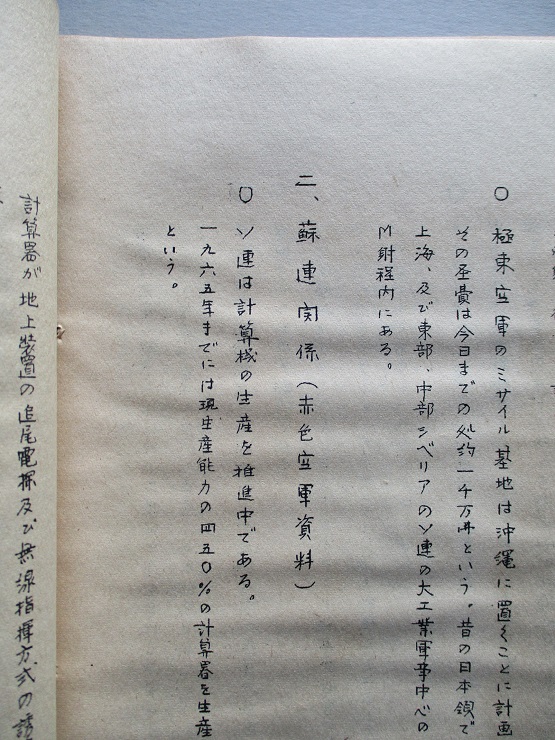 〇 極東空軍のミサイル基地は沖縄に置くことに計画
その は今日までの 約一千万弗という。昔の日本 で
上海、及び東部、中部シベリアのソ連の大工業軍事中心の
M射程内にある。
二、蘇連関係(赤色空軍資料)
〇 ソ連は計算機の生産を推進中である。
一九六五年までには現生産能力の四五〇%の計算器を生産
という。
計算器が地上装置の追尾電探及び無線指揮方式の誘